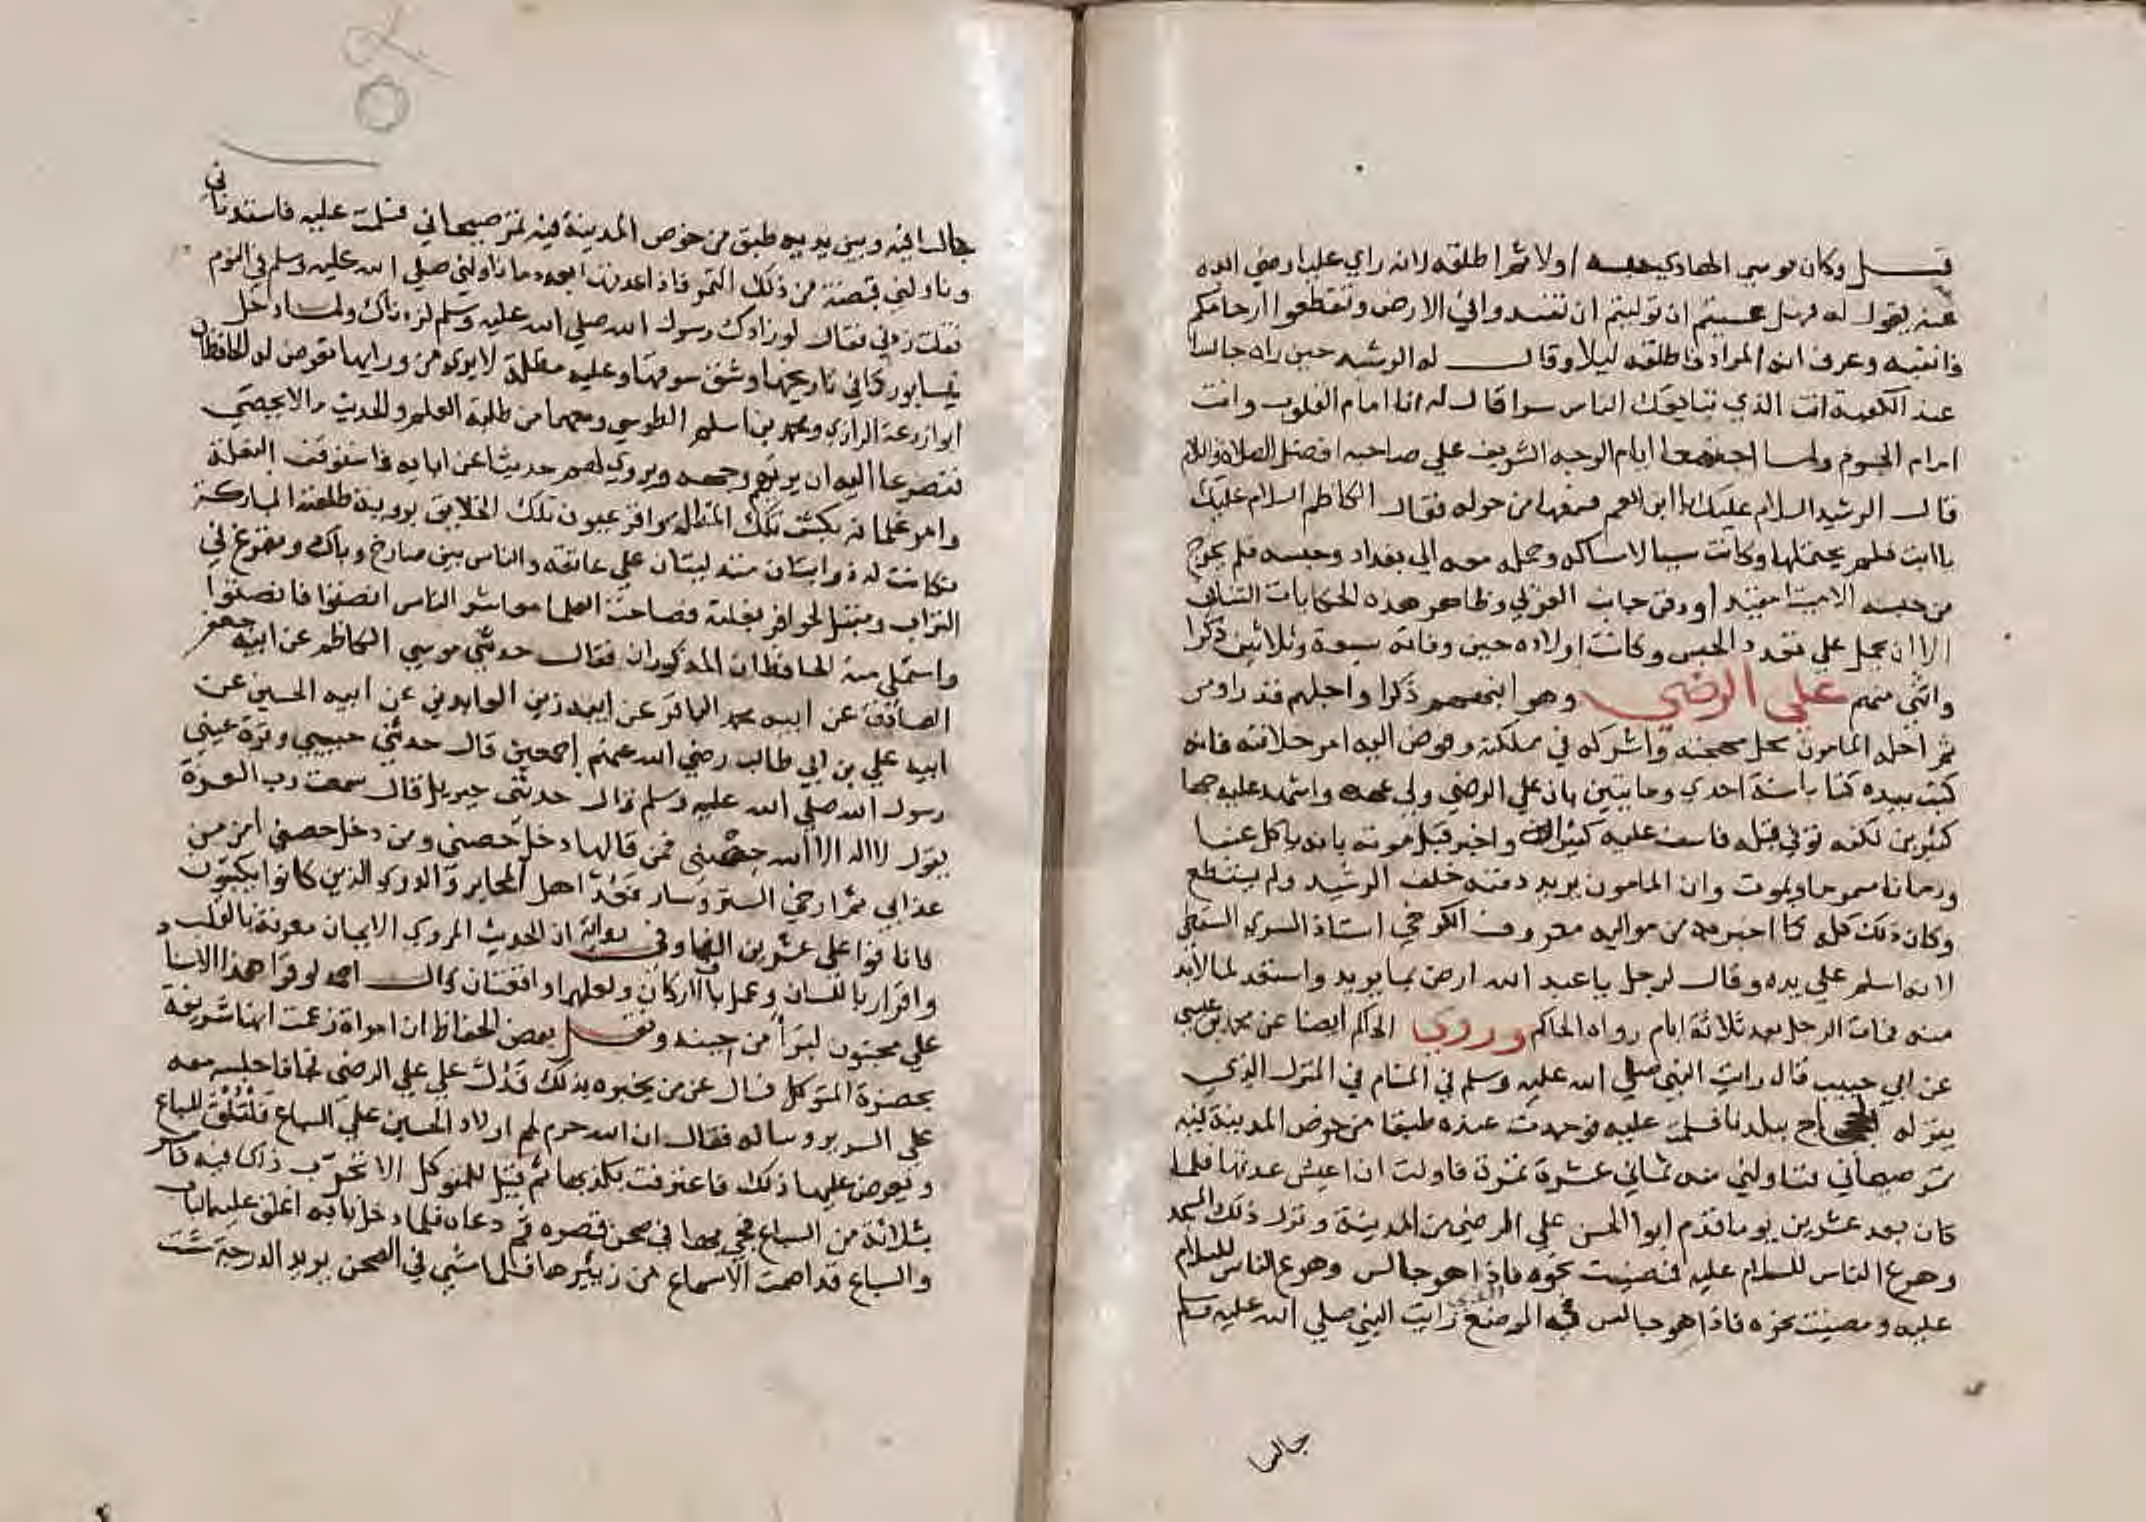 قيل وكان موسي الهادي حبسه اولا ثم اطلقه لانه راي عليا رضي الله
عنه يقول له فهل عسيتم ان توليتم ان تفسدوا في الارض وتقطعوا ارحامكم
فانتبه وعرف انه المراد فاطلقه ليلا وقال له الرشيد حين راه جالسا
عند الكعبة انت الذي تبايعك الناس سرا قال له انا امام القلوب وانت
امام الجسوم ولما اجتمعا امام الوجه الشريف علي صاحبه افضل الصلاة والسلام
قال الرشيد السلام عليك يا ابن العم سمعها من حوله فقال الكاظم السلام عليك
يا ابت فلم يحتملها وكانت سببا لامساكه وحمله معه الي بغداد وحبسه فلم يخرج
من حبسه الا ميتا مقيدا ودفن جانب الغربي وظاهر هذه الحكايات التنافي
الا ان يحمل علي تعدد الحبس وكانت اولاده حين وفاته سبعة وثلاثين ذكرا
وانثي منهم علي الرضي وهو انبههم ذكرا واجلهم قدرا ومن
ثم احله المامون محل مهجته واشركه في مملكته وفوض اليه امر خلافته فانه
كتب بيده كتابا سنة احدي ومايتين بان علي الرضي ولي عهده واشهد عليه جمعا
كثيرين لكنه توفي قبله فاسف عليه كثيرا واخبر قبل موته بانه ياكل عنبا
ورمانا مسموما ويموت وان المامون يريد دفنه خلف الرشيد ولم يستطع
وكان ذلك كله كما اخبر به من مواليه معروف الكرخي استاذ السري السقطي
لانه اسلم علي يده وقال لرجل يا عبد الله ارض بما يريد واستعد لما لابد
منه فمات الرجل بعد ثلاثة ايام رواه الحاكم وروي الحاكم ايضا عن محمد بن عيسي
عن ابي حبيب قال رايت النبي صلي الله عليه وسلم في المنام في المنزل الذي
ينزله الحجاج ببلدنا فسلمت عليه فوجدت عنده طبقا من خوص المدينة فيه
تمر صيحاني فناولني منه ثماني عشرة تمرة فاولت ان اعيش عدتها فلما
كان بعد عشرين يوما قدم ابو الحسن علي الرضي من المدينة ونزل ذلك المسجد
وهرع الناس للسلام عليه فمضيت نحوه فاذا هو جالس وهرع الناس للسلام
عليه ومضيت نحوه فاذا هو جالس في الموضع الذي رايت النبي صلي الله عليه وسلم
جالسا
جالسا فيه وبين يديه طبق من خوص المدينة فيه تمر صيحاني فسلمت عليه فاستدناني
وناولني قبضة من ذلك التمر فاذا عدتها بعدد ما ناولني صلي الله عليه وسلم في النوم
فقلت زدني فقال لو زادك رسول الله صلي الله عليه وسلم لزدناك ولما دخل
نيسابور كما في تاريخها وشق سوقها وعليه مظلة لا يري من ورايها تعرض له الحافظان
ابو زرعة الرازي ومحمد بن اسلم الطوسي ومعهما من طلبة العلم والحديث ما لا يحصي
فتضرعا اليه ان يريهم وجهه ويروي لهم حديثا عن ابايه فاستوقف البغلة
وامر غلمانه بكشف تلك المظلة واقر عيون تلك الخلايق برؤية طلعته المباركة
فكانت له ذوابتان متدليتان علي عاتقه والناس بين صارخ وباك ومتمرغ في
التراب ومقبل لحوافر بغلته فصاحت العلما معاشر الناس انصتوا فانصتوا
واستملي منه الحافظان المذكوران فقال حدثني موسي الكاظم عن ابيه جعفر
الصادق عن ابيه محمد الباقر عن ابيه زين العابدين عن ابيه الحسين عن
ابيه علي بن ابي طالب رضي الله عنهم اجمعين قال حدثني حبيبي وقرة عيني
رسول الله صلي الله عليه وسلم قال حدثني جبريل قال سمعت رب العزة
يقول لا اله الا الله حصني فمن قالها دخل حصني ومن دخل حصني امن من
عذابي ثم ارخي الستر وسار فعد اهل المحابر والدوي الذين كانوا يكتبون
فانافوا علي عشرين الفا وفي رواية ان الحديث المروي الايمان معرفة بالقلب
واقرار باللسان وعمل بالاركان ولعلهما واقعتان قال احمد لو قرا هذا الاسناد
علي مجنون لبرا من جنته ونقل بعض الحفاظ ان امراة زعمت انها شريفة
بحضرة المتوكل فسال عن من يخبره بذلك فدل علي علي الرضي فجا فاجلسه معه
علي السرير وساله فقال ان الله حرم لحم اولاد الحسين علي السباع فلتلق للسباع
وتعرض عليها ذلك فاعترفت بكذبها ثم قيل للمتوكل الا تجرب ذلك فيه فامر
بثلاثة من السباع فجي بها في صحن قصره ثم دعاه فلما دخل بابه اغلق عليه الباب
والسباع قد اصمت الاسماع من زئيرها فلما مشي في الصحن يريد الدرجة مشت